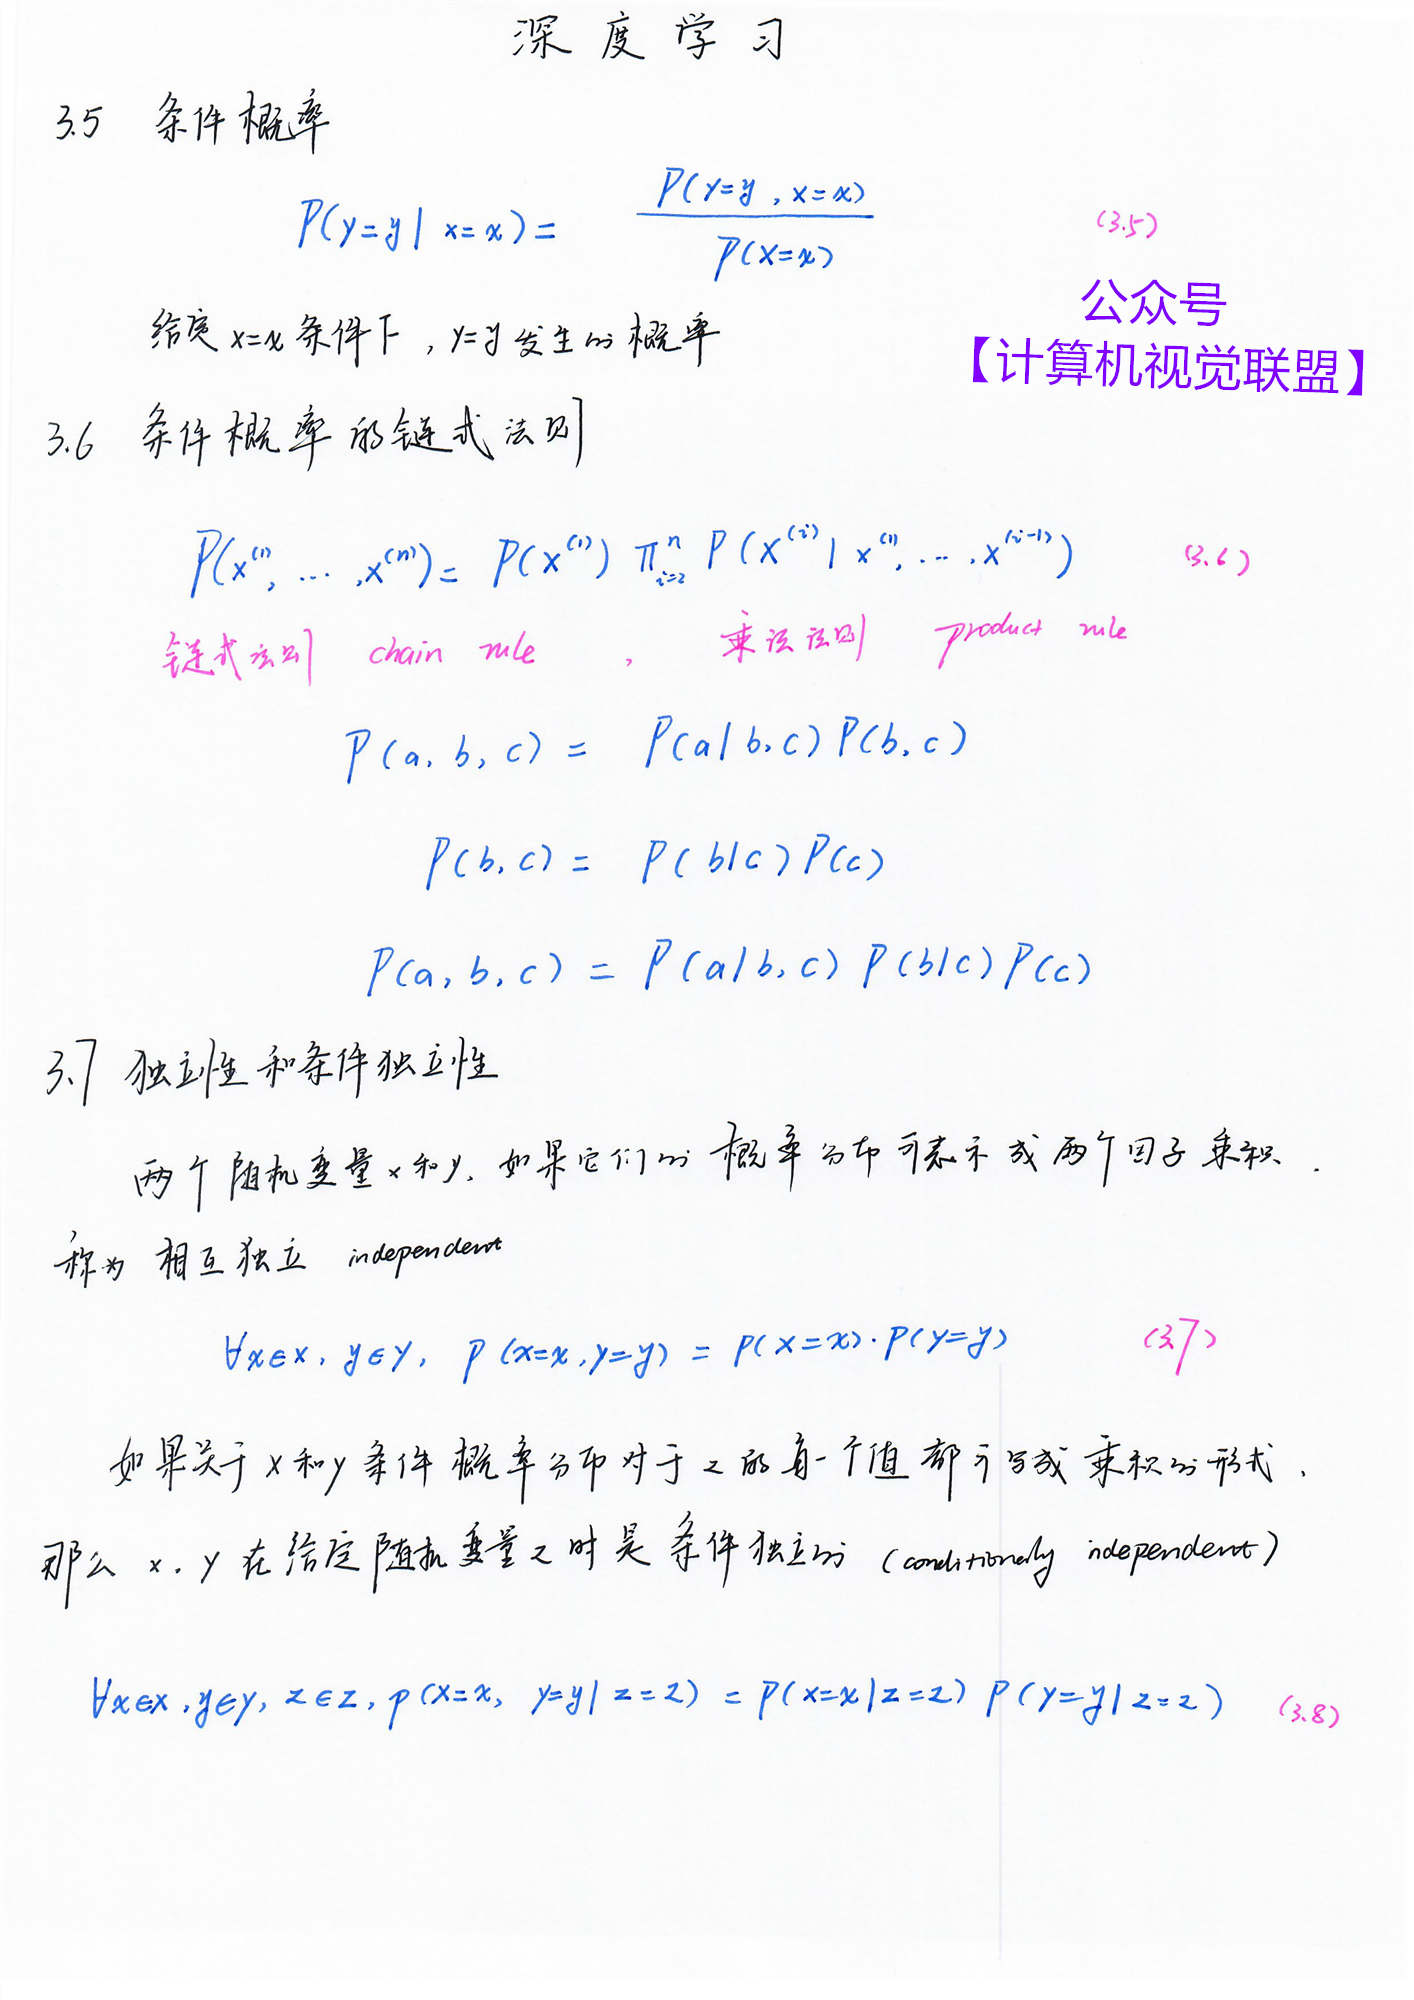 深度学习
3.5 条件概率
P(y=y | x=x) = P(y=y, x=x) / P(x=x) (3.5)
公众号
【计算机视觉联盟】
给定 x=x 条件下, y=y 发生的概率
3.6 条件概率的链式法则
P(x⁽¹⁾, ..., x⁽ⁿ⁾) = P(x⁽¹⁾) Π_{i=2}^{n} P(x⁽ⁱ⁾ | x⁽¹⁾, ..., x⁽ⁱ⁻¹⁾) (3.6)
链式法则 chain rule , 乘法法则 product rule
P(a, b, c) = P(a | b, c) P(b, c)
P(b, c) = P(b | c) P(c)
P(a, b, c) = P(a | b, c) P(b | c) P(c)
3.7 独立性和条件独立性
两个随机变量 x 和 y, 如果它们的概率分布可表示成两个因子乘积.
称为相互独立 independent
∀x∈x, y∈y, p(x=x, y=y) = p(x=x)·p(y=y) (3.7)
如果关于 x 和 y 条件概率分布对于 z 的每一个值都可写成乘积的形式.
那么 x, y 在给定随机变量 z 时是条件独立的 (conditionally independent)
∀x∈x, y∈y, z∈z, p(x=x, y=y | z=z) = p(x=x | z=z) p(y=y | z=z) (3.8)